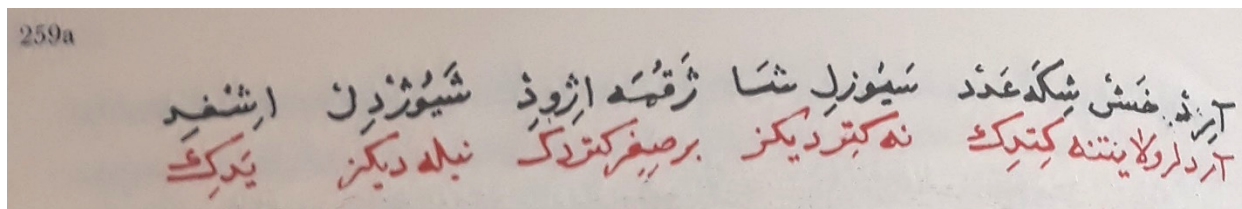 259a
آرِدْ خَسْ شِكَه عَدَدْ سَيُوزلِ شَا رَقْمَه اژِوِذْ شَيُوژْدِلْ اِشْفِدِ
آرد لر ولاينتنه كِتدِك نه كتر ديكز بر صِغِر كتردك نيله ديكز يَدِك